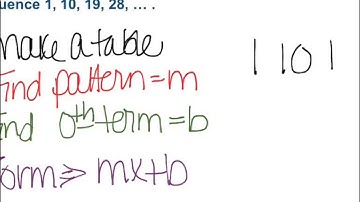 uence 1, 10, 19, 28, ... .
make a table
Find pattern = m
find 0th term = b
form ⇒ mx+b
1 10 1